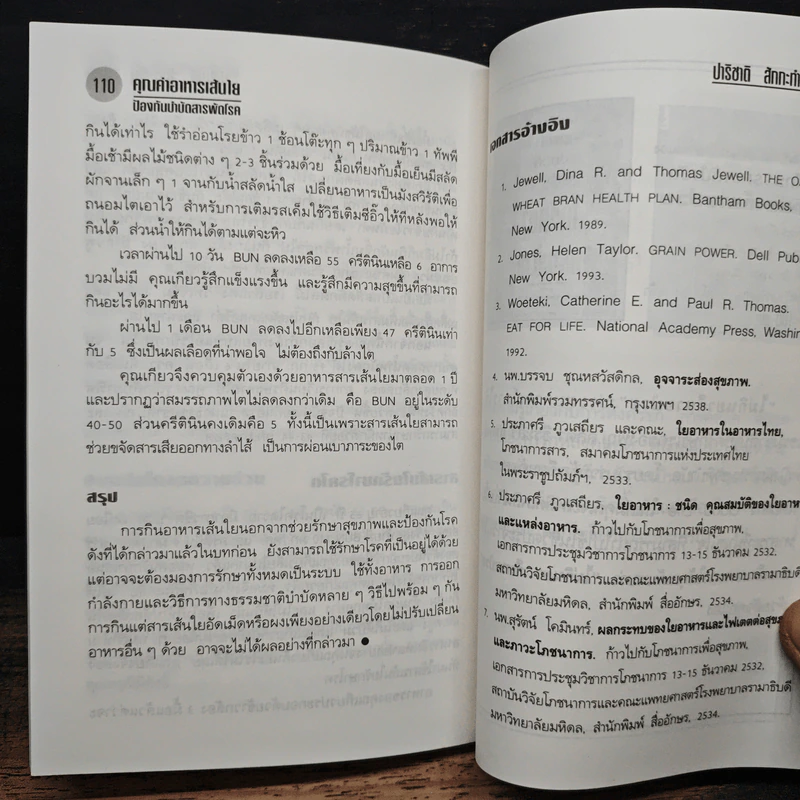 110 คุณค่าอาหารเส้นใย
ป้องกันบำบัดสารพัดโรค
กินได้เท่าไร ใช้รำอ่อนโรยข้าว 1 ช้อนโต๊ะทุก ๆ ปริมาณข้าว 1 ทัพพี
มื้อเช้ามีผลไม้ชนิดต่าง ๆ 2-3 ชิ้นร่วมด้วย มื้อเที่ยงกับมื้อเย็นมีสลัด
ผักจานเล็ก ๆ 1 จานกับน้ำสลัดน้ำใส เปลี่ยนอาหารเป็นมังสวิรัติเพื่อ
ถนอมไตเอาไว้ สำหรับการเติมรสเค็มใช้วิธีเติมซีอิ๊วให้ทีหลังพอให้
กินได้ ส่วนน้ำให้กินได้ตามแต่จะหิว
เวลาผ่านไป 10 วัน BUN ลดลงเหลือ 55 ครีตินินเหลือ 6 อาการ
บวมไม่มี คุณเกียวรู้สึกแข็งแรงขึ้น และรู้สึกมีความสุขขึ้นที่สามารถ
กินอะไรได้มากขึ้น
ผ่านไป 1 เดือน BUN ลดลงไปอีกเหลือเพียง 47 ครีตินินเท่า
กับ 5 ซึ่งเป็นผลเลือดที่น่าพอใจ ไม่ต้องถึงกับล้างไต
คุณเกียวจึงควบคุมตัวเองด้วยอาหารสารเส้นใยมาตลอด 1 ปี
และปรากฏว่าสมรรถภาพไตไม่ลดลงกว่าเดิม คือ BUN อยู่ในระดับ
40-50 ส่วนครีตินินคงเดิมคือ 5 ทั้งนี้เป็นเพราะสารเส้นใยสามารถ
ช่วยขจัดสารเสียออกทางลำไส้ เป็นการผ่อนเบาภาระของไต
สรุป
การกินอาหารเส้นใยนอกจากช่วยรักษาสุขภาพและป้องกันโรค
ดังที่ได้กล่าวมาแล้วในบทก่อน ยังสามารถใช้รักษาโรคที่เป็นอยู่ได้ด้วย
แต่อาจจะต้องมองการรักษาทั้งหมดเป็นระบบ ใช้ทั้งอาหาร การออก
กำลังกายและวิธีการทางธรรมชาติบำบัดหลาย ๆ วิธีไปพร้อม ๆ กัน
การกินแต่สารเส้นใยอัดเม็ดหรือผงเพียงอย่างเดียวโดยไม่ปรับเปลี่ยน
อาหารอื่น ๆ ด้วย อาจจะไม่ได้ผลอย่างที่กล่าวมา ●
ปาริชาติ สักกะทำ
เอกสารอ้างอิง
1. Jewell, Dina R. and Thomas Jewell, THE
WHEAT BRAN HEALTH PLAN. Bantham Books,
New York. 1989.
2. Jones, Helen Taylor. GRAIN POWER. Dell Pub
New York. 1993.
3. Woeteki, Catherine E. and Paul R. Thomas.
EAT FOR LIFE. National Academy Press, Washin
1992.
4. นพ.บรรจบ ชุณหสวัสดิกล, อุจจาระส่องสุขภาพ.
สำนักพิมพ์รวมทรรศน์, กรุงเทพฯ 2538.
5. ประภาศรี ภูวเสถียร และคณะ, ใยอาหารในอาหารไทย,
โภชนาการสาร, สมาคมโภชนาการแห่งประเทศไทย
ในพระราชูปถัมภ์ฯ, 2533.
6. ประภาศรี ภูวเสถียร, ใยอาหาร : ชนิด คุณสมบัติของใยอาห
และแหล่งอาหาร. ก้าวไปกับโภชนาการเพื่อสุขภาพ,
เอกสารการประชุมวิชาการโภชนาการ 13-15 ธันวาคม 2532.
สถาบันวิจัยโภชนาการและคณะแพทยศาสตร์โรงพยาบาลรามาธิบดี
มหาวิทยาลัยมหิดล, สำนักพิมพ์ สื่ออักษร, 2534.
7. นพ.สุรัตน์ โคมินทร์, ผลกระทบของใยอาหารและไฟเตตต่อสุขภ
และภาวะโภชนาการ. ก้าวไปกับโภชนาการเพื่อสุขภาพ,
เอกสารการประชุมวิชาการโภชนาการ 13-15 ธันวาคม 2532.
สถาบันวิจัยโภชนาการและคณะแพทยศาสตร์โรงพยาบาลรามาธิบดี
มหาวิทยาลัยมหิดล, สำนักพิมพ์ สื่ออักษร, 2534.